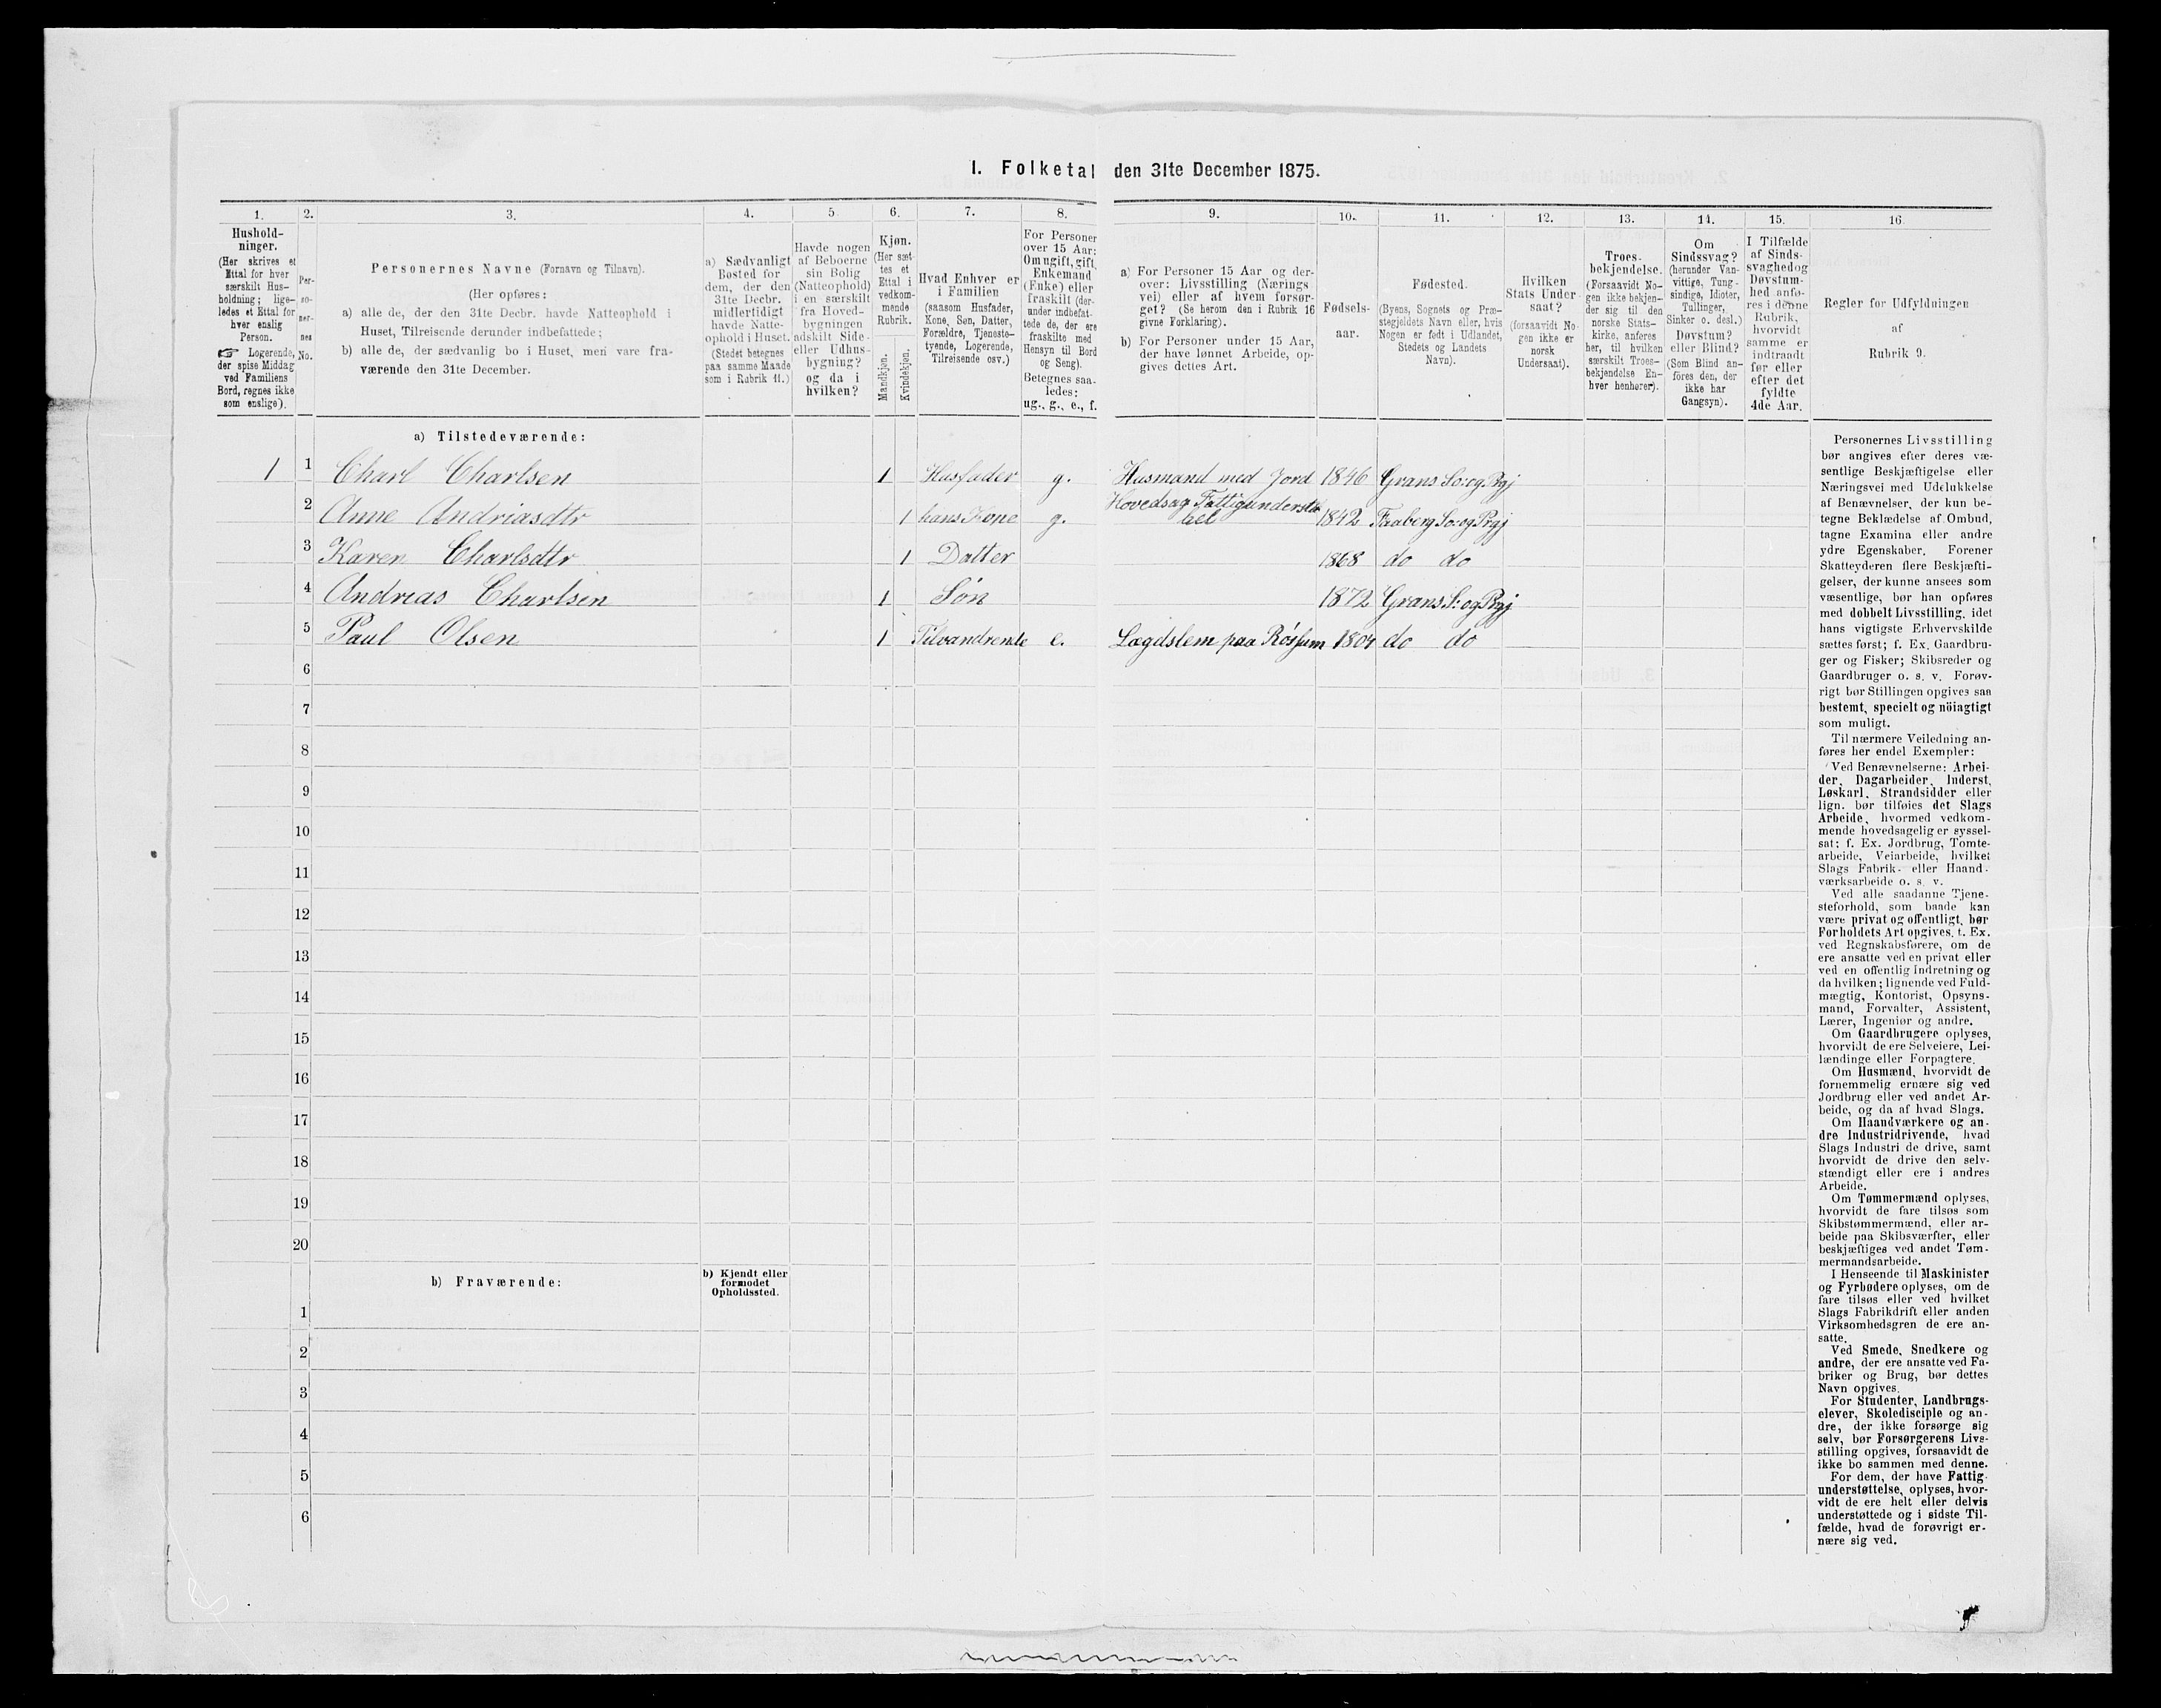 I. Folketal den 31te December 1875.
1. 2. 3. 4. 5 6. 7. 8. 9. 10. 11. 12. 13. 14. 15. 16.
Hushold-
ninger.
(Her skrives et
Ettal for hver
særskilt Hus-
holdning; lige-
ledes et Ettal for
hver enslig
Person.
☞ Logerende,
der spise Middag
ved Familiens
Bord, regnes ikke
som enslige).
Per-
so-
ner-
nes
No.
Personernes Navne (Fornavn og Tilnavn).
(Her opføres:
a) alle de, der den 31te Decbr. havde Natteophold i
Huset, Tilreisende derunder indbefattede;
b) alle de, der sædvanlig bo i Huset, men vare fra-
værende den 31te December.
a) Sædvanligt
Bosted for
dem, der den
31te Decbr.
midlertidigt
havde Natte-
ophold i Huset.
(Stedet betegnes
paa samme Maade
som i Rubrik 11.)
Havde nogen
af Beboerne
sin Bolig
(Natteophold)
i en særskilt
fra Hoved-
bygningen
adskilt Side-
eller Udhus-
bygning?
og da i
hvilken?
Kjøn.
(Her sæt-
tes et
Ettal i
vedkom-
mende
Rubrik.
Mandkjøn.
Kvindekjøn.
Hvad Enhver er
i Familien
(saasom Husfader,
Kone, Søn, Datter,
Forældre, Tjeneste-
tyende, Logerende,
Tilreisende osv.)
For Personer
over 15 Aar:
Om ugift, gift,
Enkemand
(Enke) eller
fraskilt (der-
under indbefat-
tede de, der ere
fraskilte med
Hensyn til Bord
og Seng).
Betegnes saa-
ledes:
ug., g., e., f.
a) For Personer 15 Aar og der-
over: Livsstilling (Nærings
vei) eller af hvem forsør-
get? (Se herom den i Rubrik 16
givne Forklaring).
b) For Personer under 15 Aar,
der have lønnet Arbeide, op-
gives dettes Art.
Fødsels-
aar.
Fødested.
(Byens, Sognets og Præ-
stegjeldets Navn eller, hvis
Nogen er født i Udlandet,
Stedets og Landets
Navn).
Hvilken
Stats Under-
saat?
(forsaavidt No-
gen ikke er
norsk
Undersaat).
Troes-
bekjendelse.
(Forsaavidt No-
gen ikke bekjen-
der sig til den
norske Stats-
kirke, anføres
her, til hvilken
særskilt Troes-
bekjendelse En-
hver henhører).
Om
Sindssvag?
(herunder Van-
vittige, Tung-
sindige, Idioter,
Tullinger,
Sinker o. desl.)
Døvstum?
eller Blind?
(Som Blind an-
føres den, der
ikke har
Gangsyn).
I Tilfælde
af Sinds-
svaghed og
Døvstum-
hed anfø-
res i denne
Rubrik,
hvorvidt
samme er
indtraadt
før eller
efter det
fyldte
4de Aar.
Regler for Udfyldningen
af
Rubrik 9.
a) Tilstedeværende:
1 1 Charl Charlsen 1 Husfader g. Husmand med Jord 1846 Grans So: og Prgj
Hovedsag Fattigunderstø
2 Anne Andriasdtr 1 hans Kone g. 1842 Faaberg So: og Prgj
3 Karen Charlsdtr 1 Datter 1868 do do
4 Andreas Charlsen 1 Søn 1872 Grans S: og Prgj
5 Paul Olsen 1 Tilvandrende e. Lægdslem paa Røssum 1804 do do
6
7
8
9
10
11
12
13
14
15
16
17
18
19
20
b) Fraværende:
b) Kjendt eller
formodet
Opholdssted.
1
2
3
4
5
6
Personernes Livsstilling
bør angives efter deres væ-
sentlige Beskjæftigelse eller
Næringsvei med Udelukkelse
af Benævnelser, der kun be-
tegne Beklædelse af Ombud,
tagne Examina eller andre
ydre Egenskaber. Forener
Skatteyderen flere Beskjæfti-
gelser, der kunne ansees som
væsentlige, bør han opføres
med dobbelt Livsstilling, idet
hans vigtigste Erhvervskilde
sættes først; f. Ex. Gaardbru-
ger og Fisker; Skibsreder og
Gaardbruger o. s. v. Forøv-
rigt bør Stillingen opgives saa
bestemt, specielt og nöiagtigt
som muligt.
Til nærmere Veiledning an-
føres her endel Exempler:
Ved Benævnelserne: Arbei-
der, Dagarbeider, Inderst,
Løskarl, Strandsidder eller
lign. bør tilføies det Slags
Arbeide, hvormed vedkom-
mende hovedsagelig er syssel-
sat; f. Ex. Jordbrug, Tomte-
arbeide, Veiarbeide, hvilket
Slags Fabrik- eller Haand-
værksarbeide o. s. v.
Ved alle saadanne Tjene-
steforhold, som baade kan
være privat og offentligt, bør
Forholdets Art opgives, t. Ex.
ved Regnskabsførere, om de
ere ansatte ved en privat eller
ved en offentlig Indretning og
da hvilken; lignende ved Fuld-
mægtig, Kontorist, Opsyns-
mand, Forvalter, Assistent,
Lærer, Ingeniør og andre.
Om Gaardbrugere oplyses,
hvorvidt de ere Selveiere, Lei-
lændinge eller Forpagtere.
Om Husmænd, hvorvidt de
fornemmelig ernære sig ved
Jordbrug eller ved andet Ar-
beide, og da af hvad Slags.
Om Haandværkere og an-
dre Industridrivende, hvad
Slags Industri de drive, samt
hvorvidt de drive den selv-
stændigt eller ere i andres
Arbeide.
Om Tømmermænd oplyses,
hvorvidt de fare tilsøs som
Skibstømmermænd, eller ar-
beide paa Skibsværfter, eller
beskjæftiges ved andet Tøm-
mermandsarbeide.
I Henseende til Maskinister
og Fyrbødere oplyses, om de
fare tilsøs eller ved hvilket
Slags Fabrikdrift eller anden
Virksomhedsgren de ere an-
satte.
Ved Smede, Snedkere og
andre, der ere ansatte ved Fa-
briker og Brug, bør dettes
Navn opgives.
For Studenter, Landbrugs-
elever, Skoledisciple og an-
dre, der ikke forsørge sig
selv, bør Forsørgerens Livs-
stilling opgives, forsaavidt de
ikke bo sammen med denne.
For dem, der have Fattig-
understøttelse, oplyses, hvor-
vidt de ere helt eller delvis
understøttede og i sidste Til-
fælde, hvad de forøvrigt er-
nære sig ved.